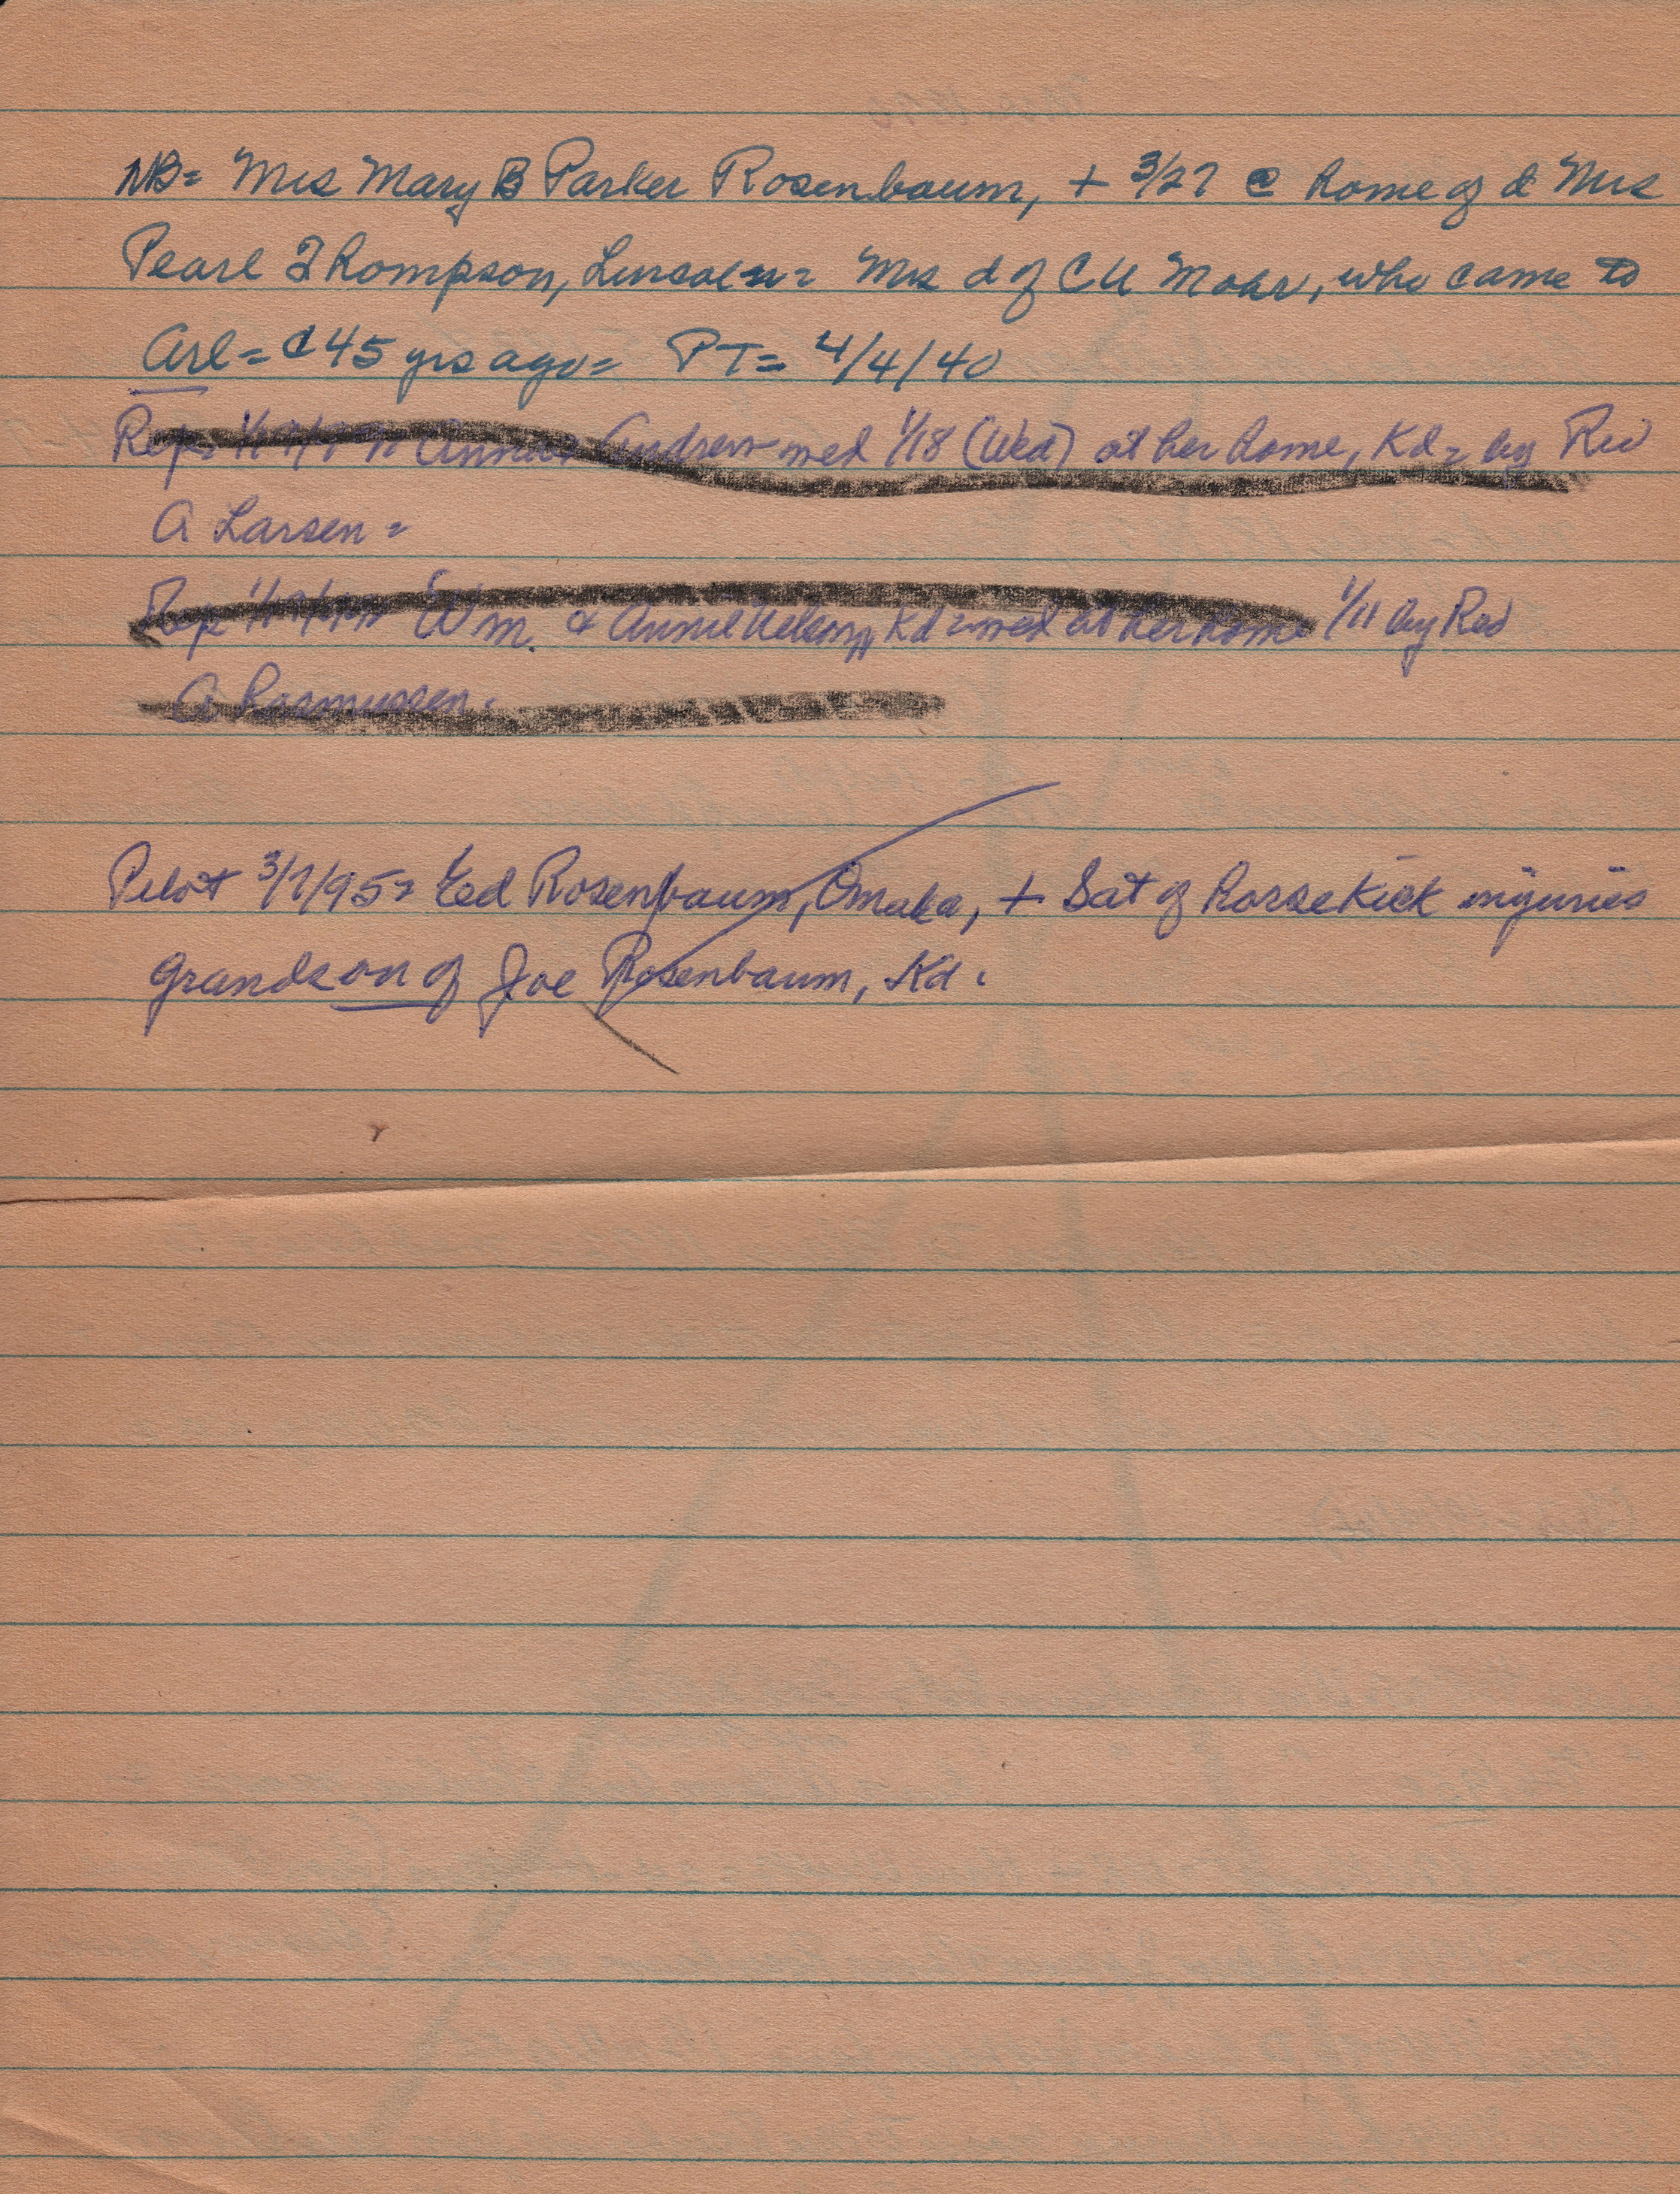 NB= Mrs Mary B Parker Rosenbaum, + 3/27 @ home of d Mrs
Pearl Thompson, Lincoln= Mrs d of C H Mohr, who came to
Arl= C 45 yrs ago= PT= 4/4/40
Rep= Andrew med 1/18 (Wed) at her home, Kd= by Rev
A Larsen=
Rep Wm. & Annie Nelson, Kd = med at her home 1/11 by Rev
A Rasmussen.
Pilot 3/7/95= Ted Rosenbaum, Omaha, + Sat of horsekick injuries
grandson of Joe Rosenbaum, Kd.